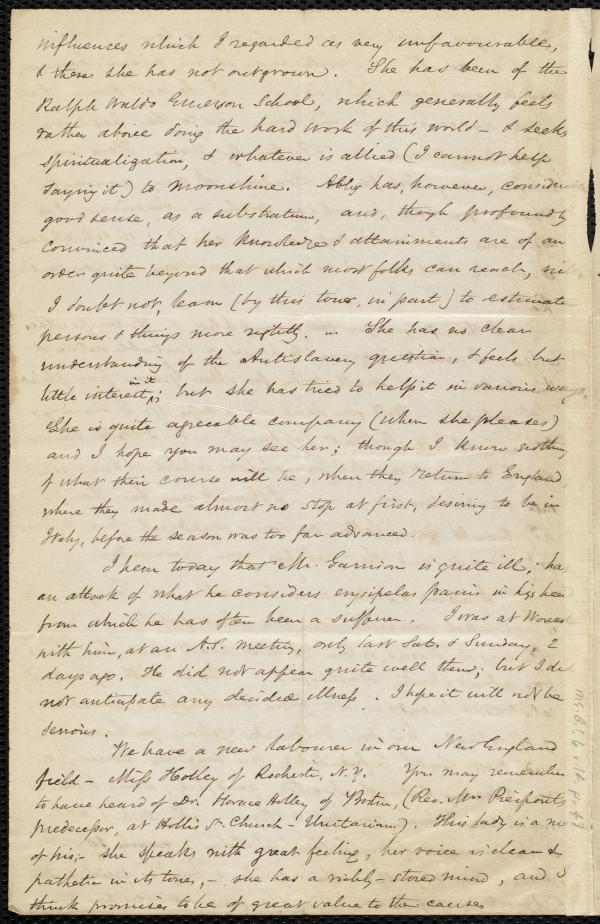 influences which I regarded as very unfavourable,
& these she has not outgrown. She has been of the
Ralph Waldo Emerson School, which generally feels
rather above doing the hard work of this world - & seeks
spiritualization, & whatever is allied (I cannot help
saying it) to moonshine. Abby has, however, consider
good sense, as a substratum, and, though profoundly
convinced that her knowledge & attainments are of an
order quite beyond that which most folks can reach, will
I doubt not, learn (by this tour, in part) to estimate
persons & things more rightly. - She has no clear
understanding of the Antislavery question, & feels but
little interest in it; but she has tried to help it in various ways.
She is quite agreeable company (when she pleases)
and I hope you may see her; though I know nothing
of what their course will be, when they return to England,
where they made almost no stop at first, desiring to be in
Italy, before the season was too far advanced.
I hear today that Mr. Garrison is quite ill; has
an attack of what he considers erysipelas pains in his
from which he has often been a sufferer. I was at Worces
with him, at an A.S. meeting, only last Sat. & Sunday, 2
days ago. He did not appear quite well then; but I did
not anticipate any decided illness. I hope it will not be
serious.
We have a new labourer in our New England
field - Miss Holley of Rochester, N.Y. You may remember
to have heard of Dr. Horace Holley of Boston, (Rev. Mr. Pierpont's
predecessor, at Hollis St. Church - Unitarian). This lady is a
of his; - she speaks with great feeling, her voice is clear &
pathetic in its tones, - she has a richly-stored mind, and I
think promises to be of great value to the cause
Ms.B.1.6 v.14, p.47